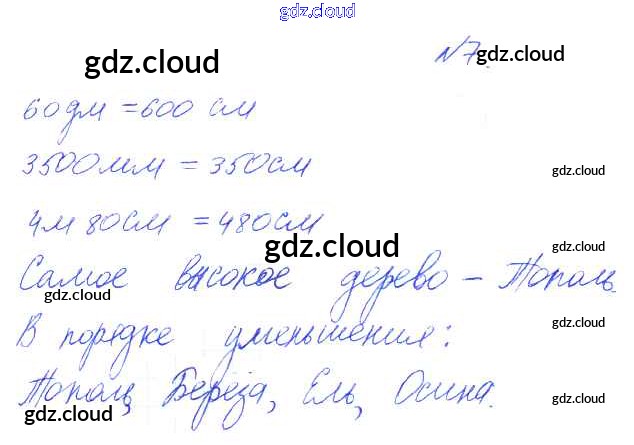 gdz.cloud
gdz.cloud
№7.
gdz.cloud
60дм = 600 см
3500мм = 350см
gdz.cloud
4м 80см = 480см
gdz.cloud
gdz.cloud
Самое высокое дерево – Тополь
gdz.cloud
В порядке уменьшения:
gdz.cloud
Тополь, Берёза, Ель, Осина.
gdz.cloud
gdz.cloud